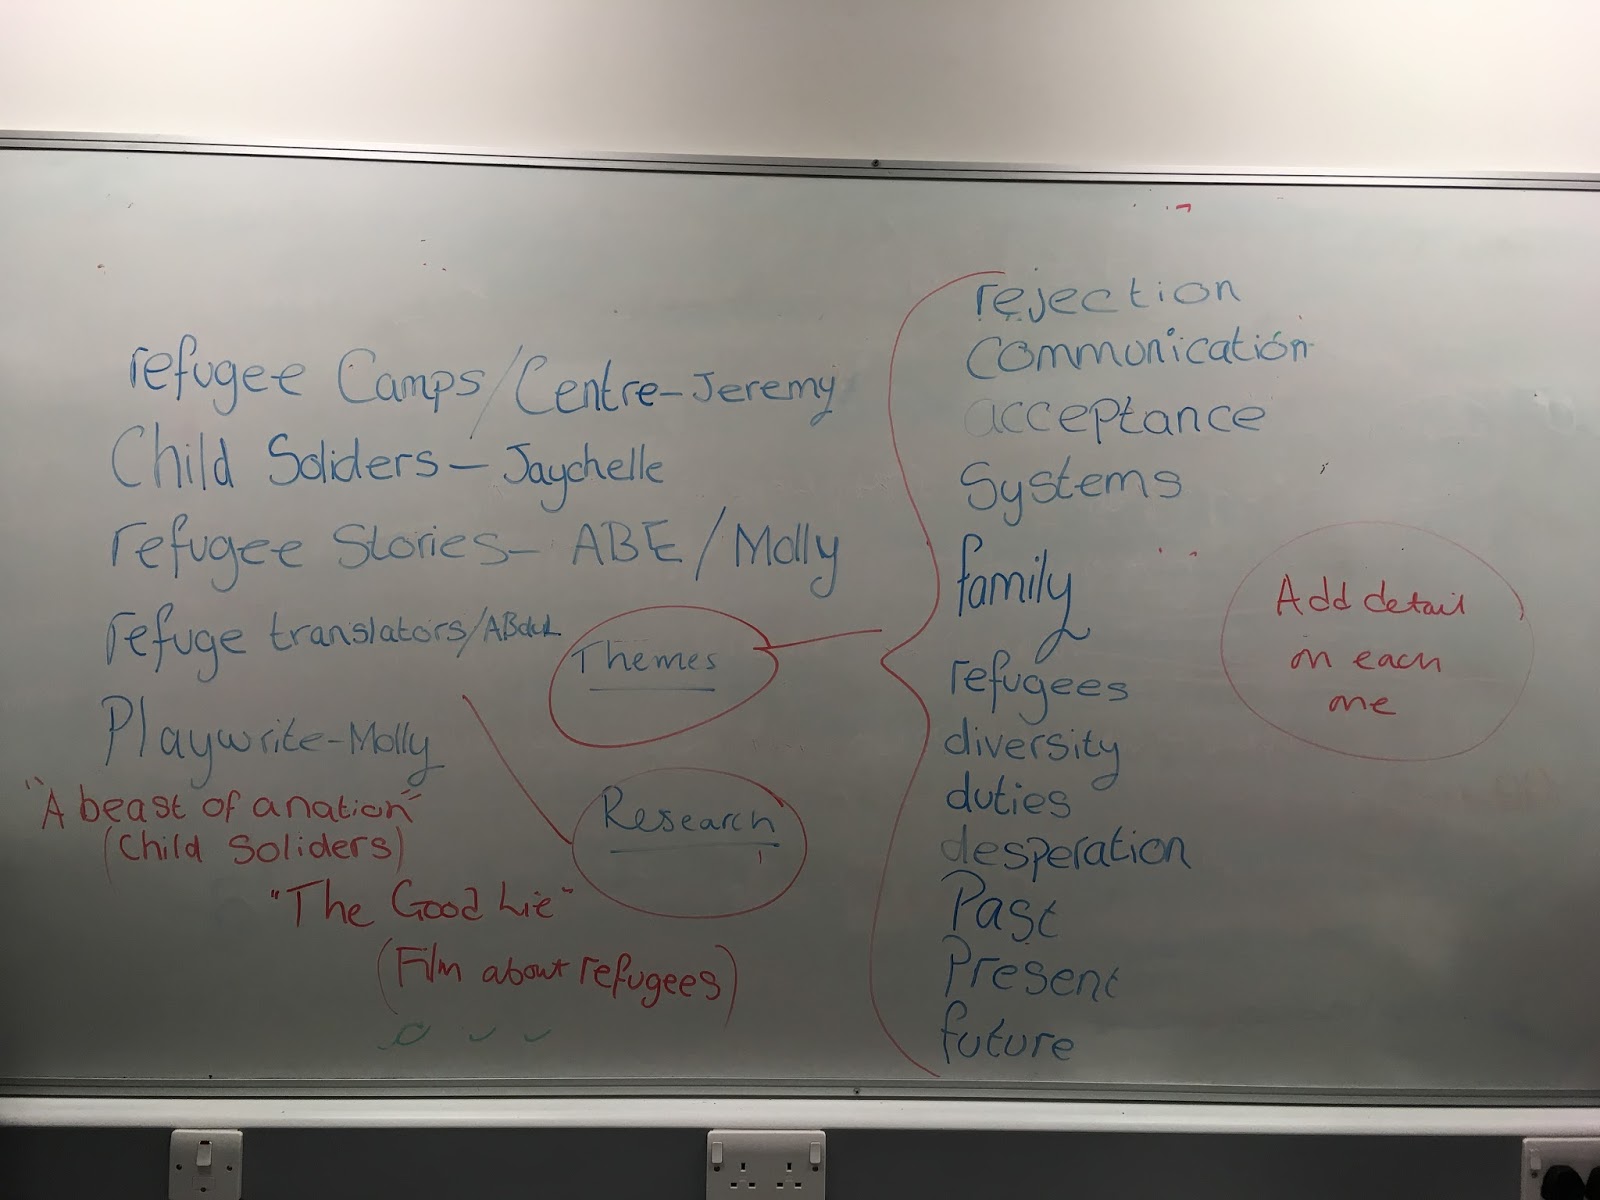 refugee Camps/Centre-Jeremy
Child Soliders - Jaychelle
refugee Stories - ABE/Molly
refuge translators/ABdul
Playwrite-Molly
"A beast of a nation"
(Child Soliders)
"The Good Lie"
(Film about refugees)
Themes
Research
rejection
Communication
acceptance
Systems
family
refugees
diversity
duties
desperation
Past
Present
future
Add detail
on each
one